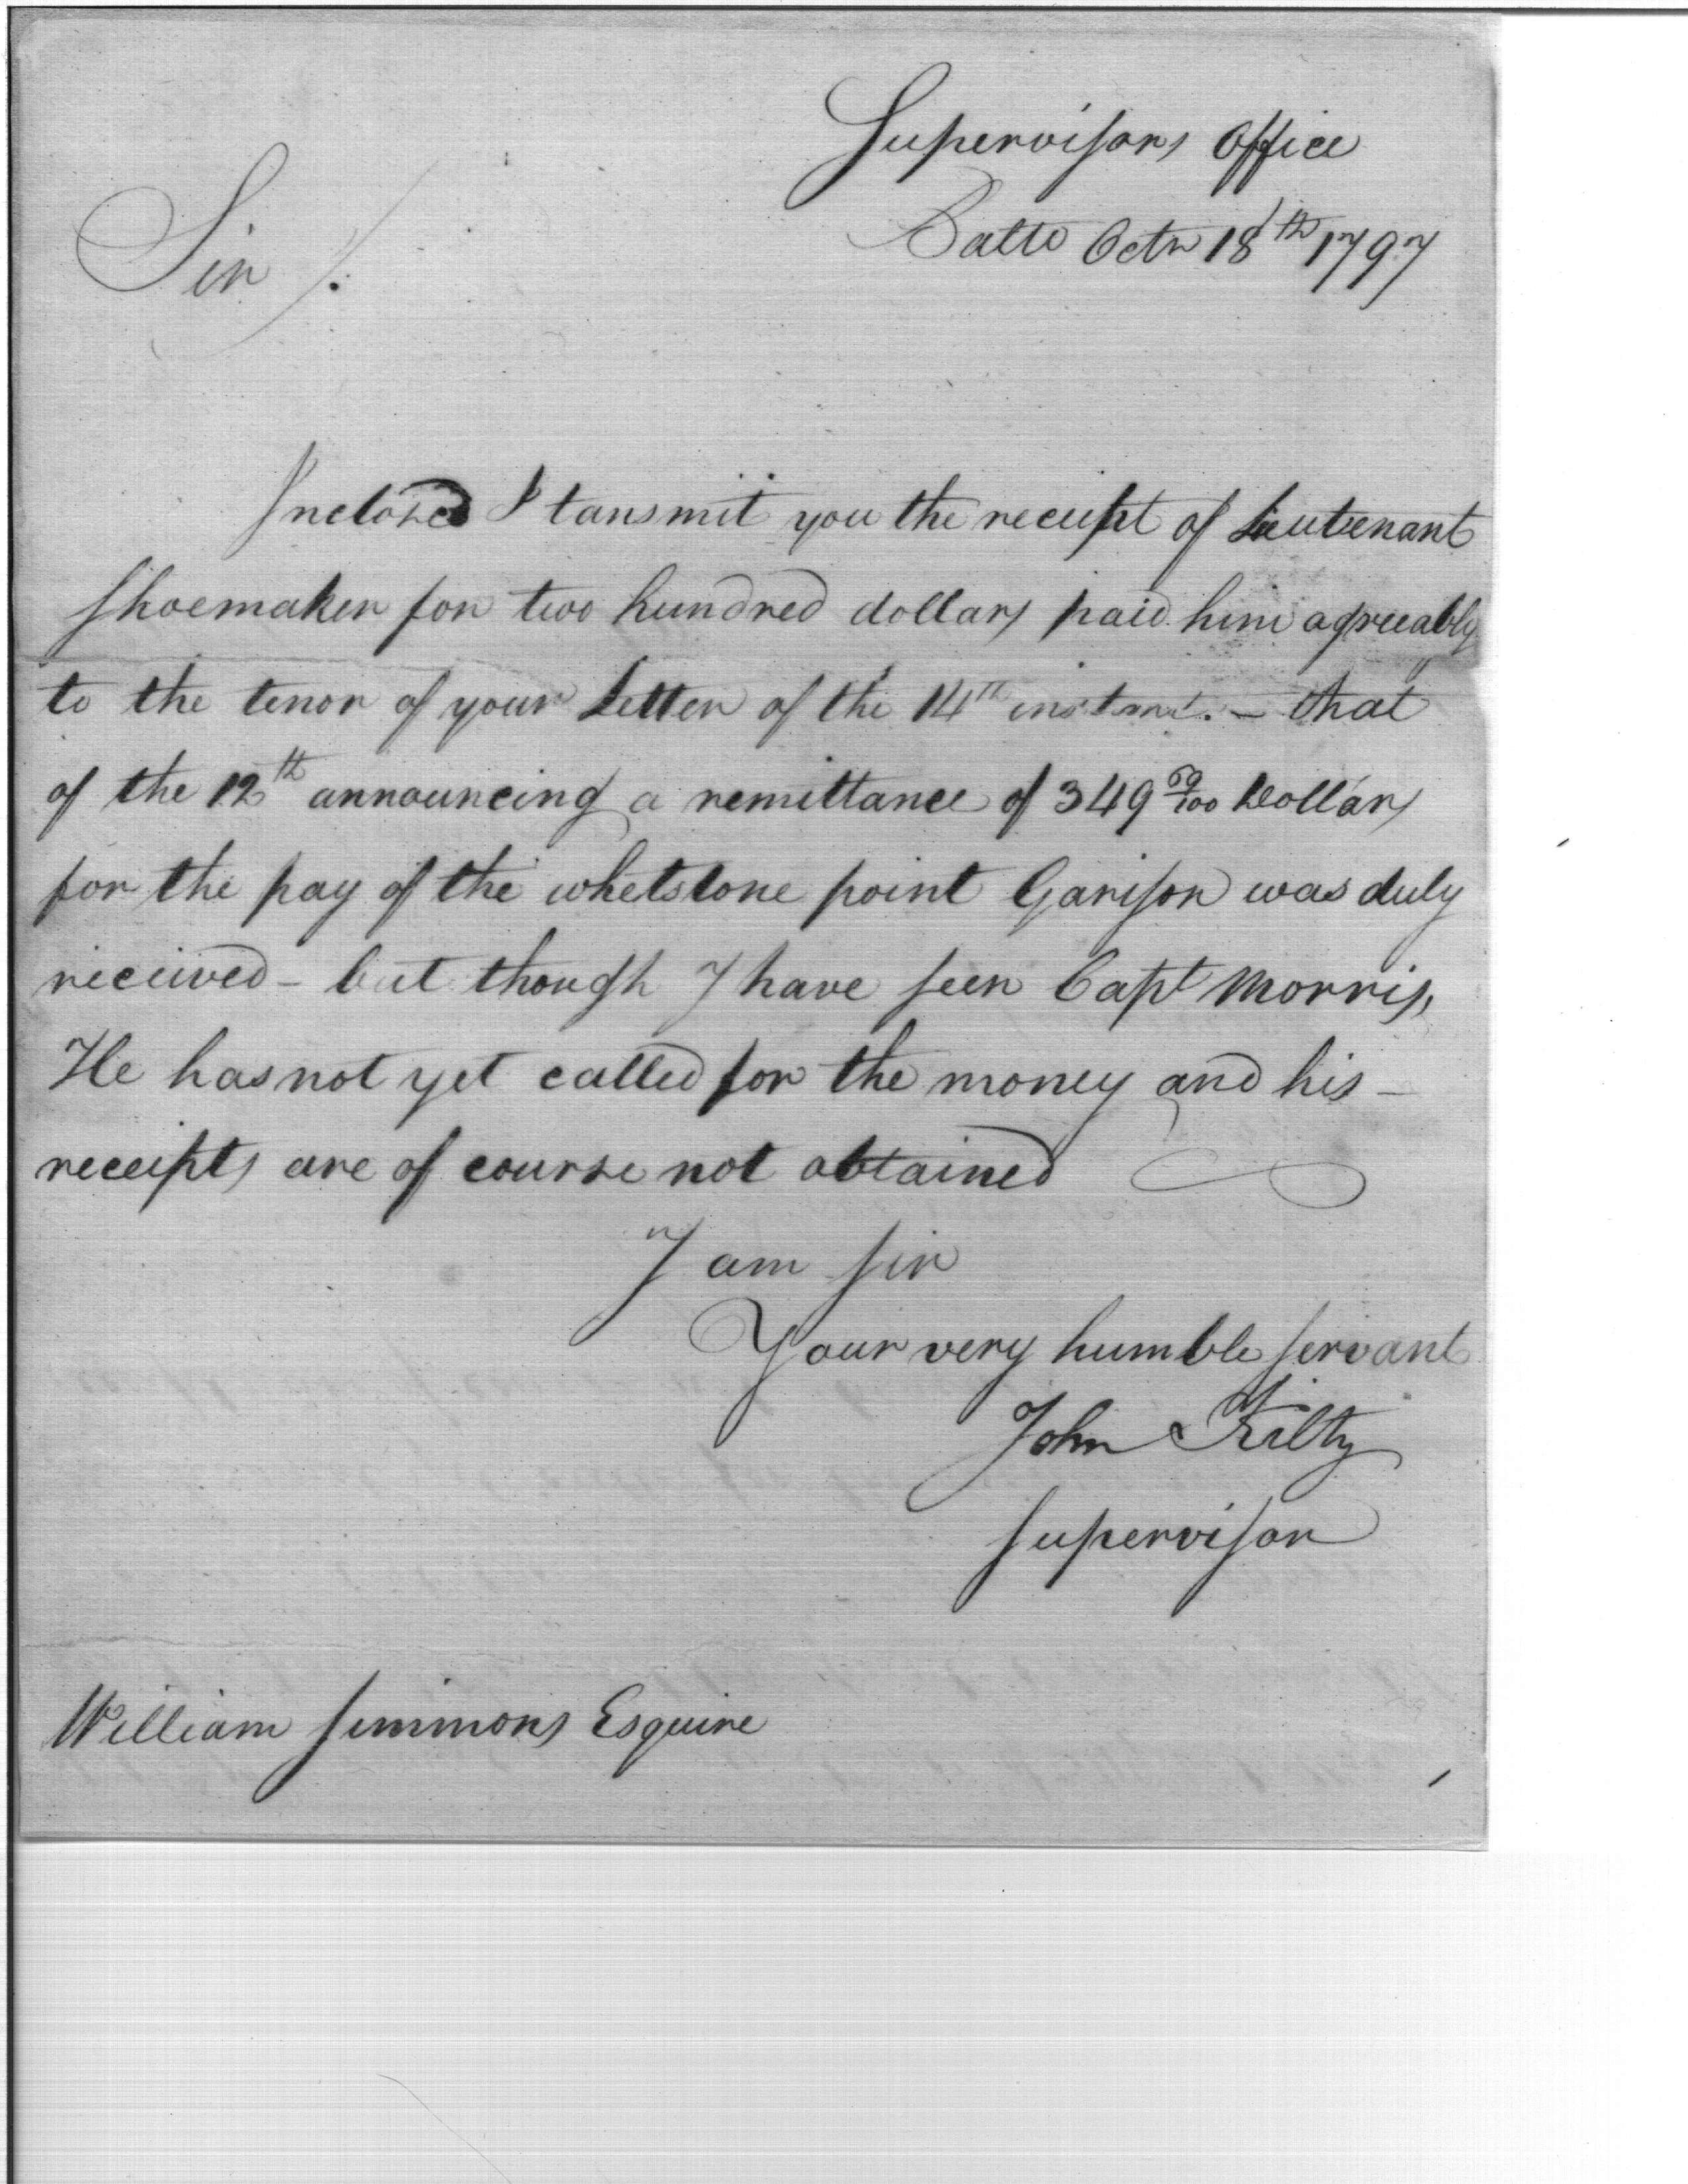 Supervisors Office
Balto Octr 18th 1797
Sir /:
Inclosed I tansmit you the receipt of Lieutenant
Shoemaker for two hundred dollars paid him agreeably
to the tenor of your Letter of the 14th instant. – that
of the 12th announcing a remittance of 349 69/100 Dollars
for the pay of the whetstone point Garison was duly
received – but though I have seen Capt Morris,
He has not yet called for the money and his –
receipts are of course not obtained
I am sir
Your very humble servant
John Kilty
supervisor
William Simmons Esquire